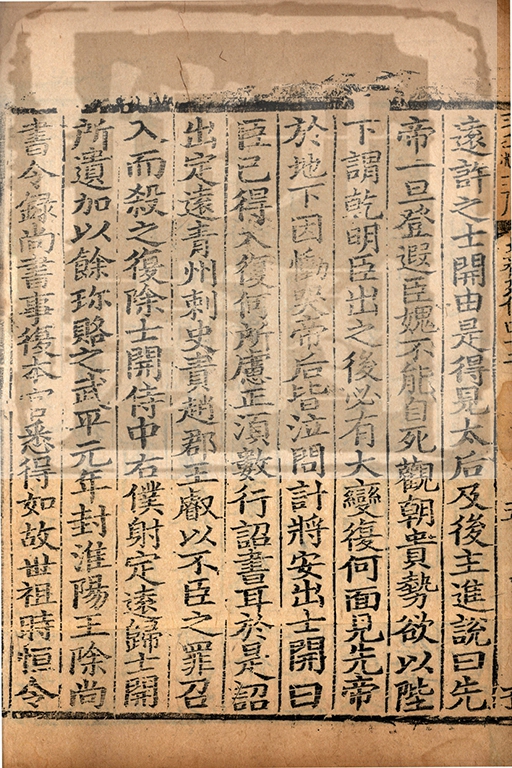 遠許之士開由是得見太后及後主進說曰先
帝一旦登遐臣媿不能自死觀朝貴勢欲以陛
下謂乾明臣出之後必有大變復何面見先帝
於地下因慟哭帝后皆泣問計將安出士開曰
臣已得入復何所慮正須數行詔書耳於是詔
出定遠青州刺史責趙郡王叡以不臣之罪召
入而殺之復除士開侍中右僕射定遠歸士開
所遺加以餘珎賂之武平元年封淮陽王除尚
書令錄尚書事復本官悉得如故世祖時恒令